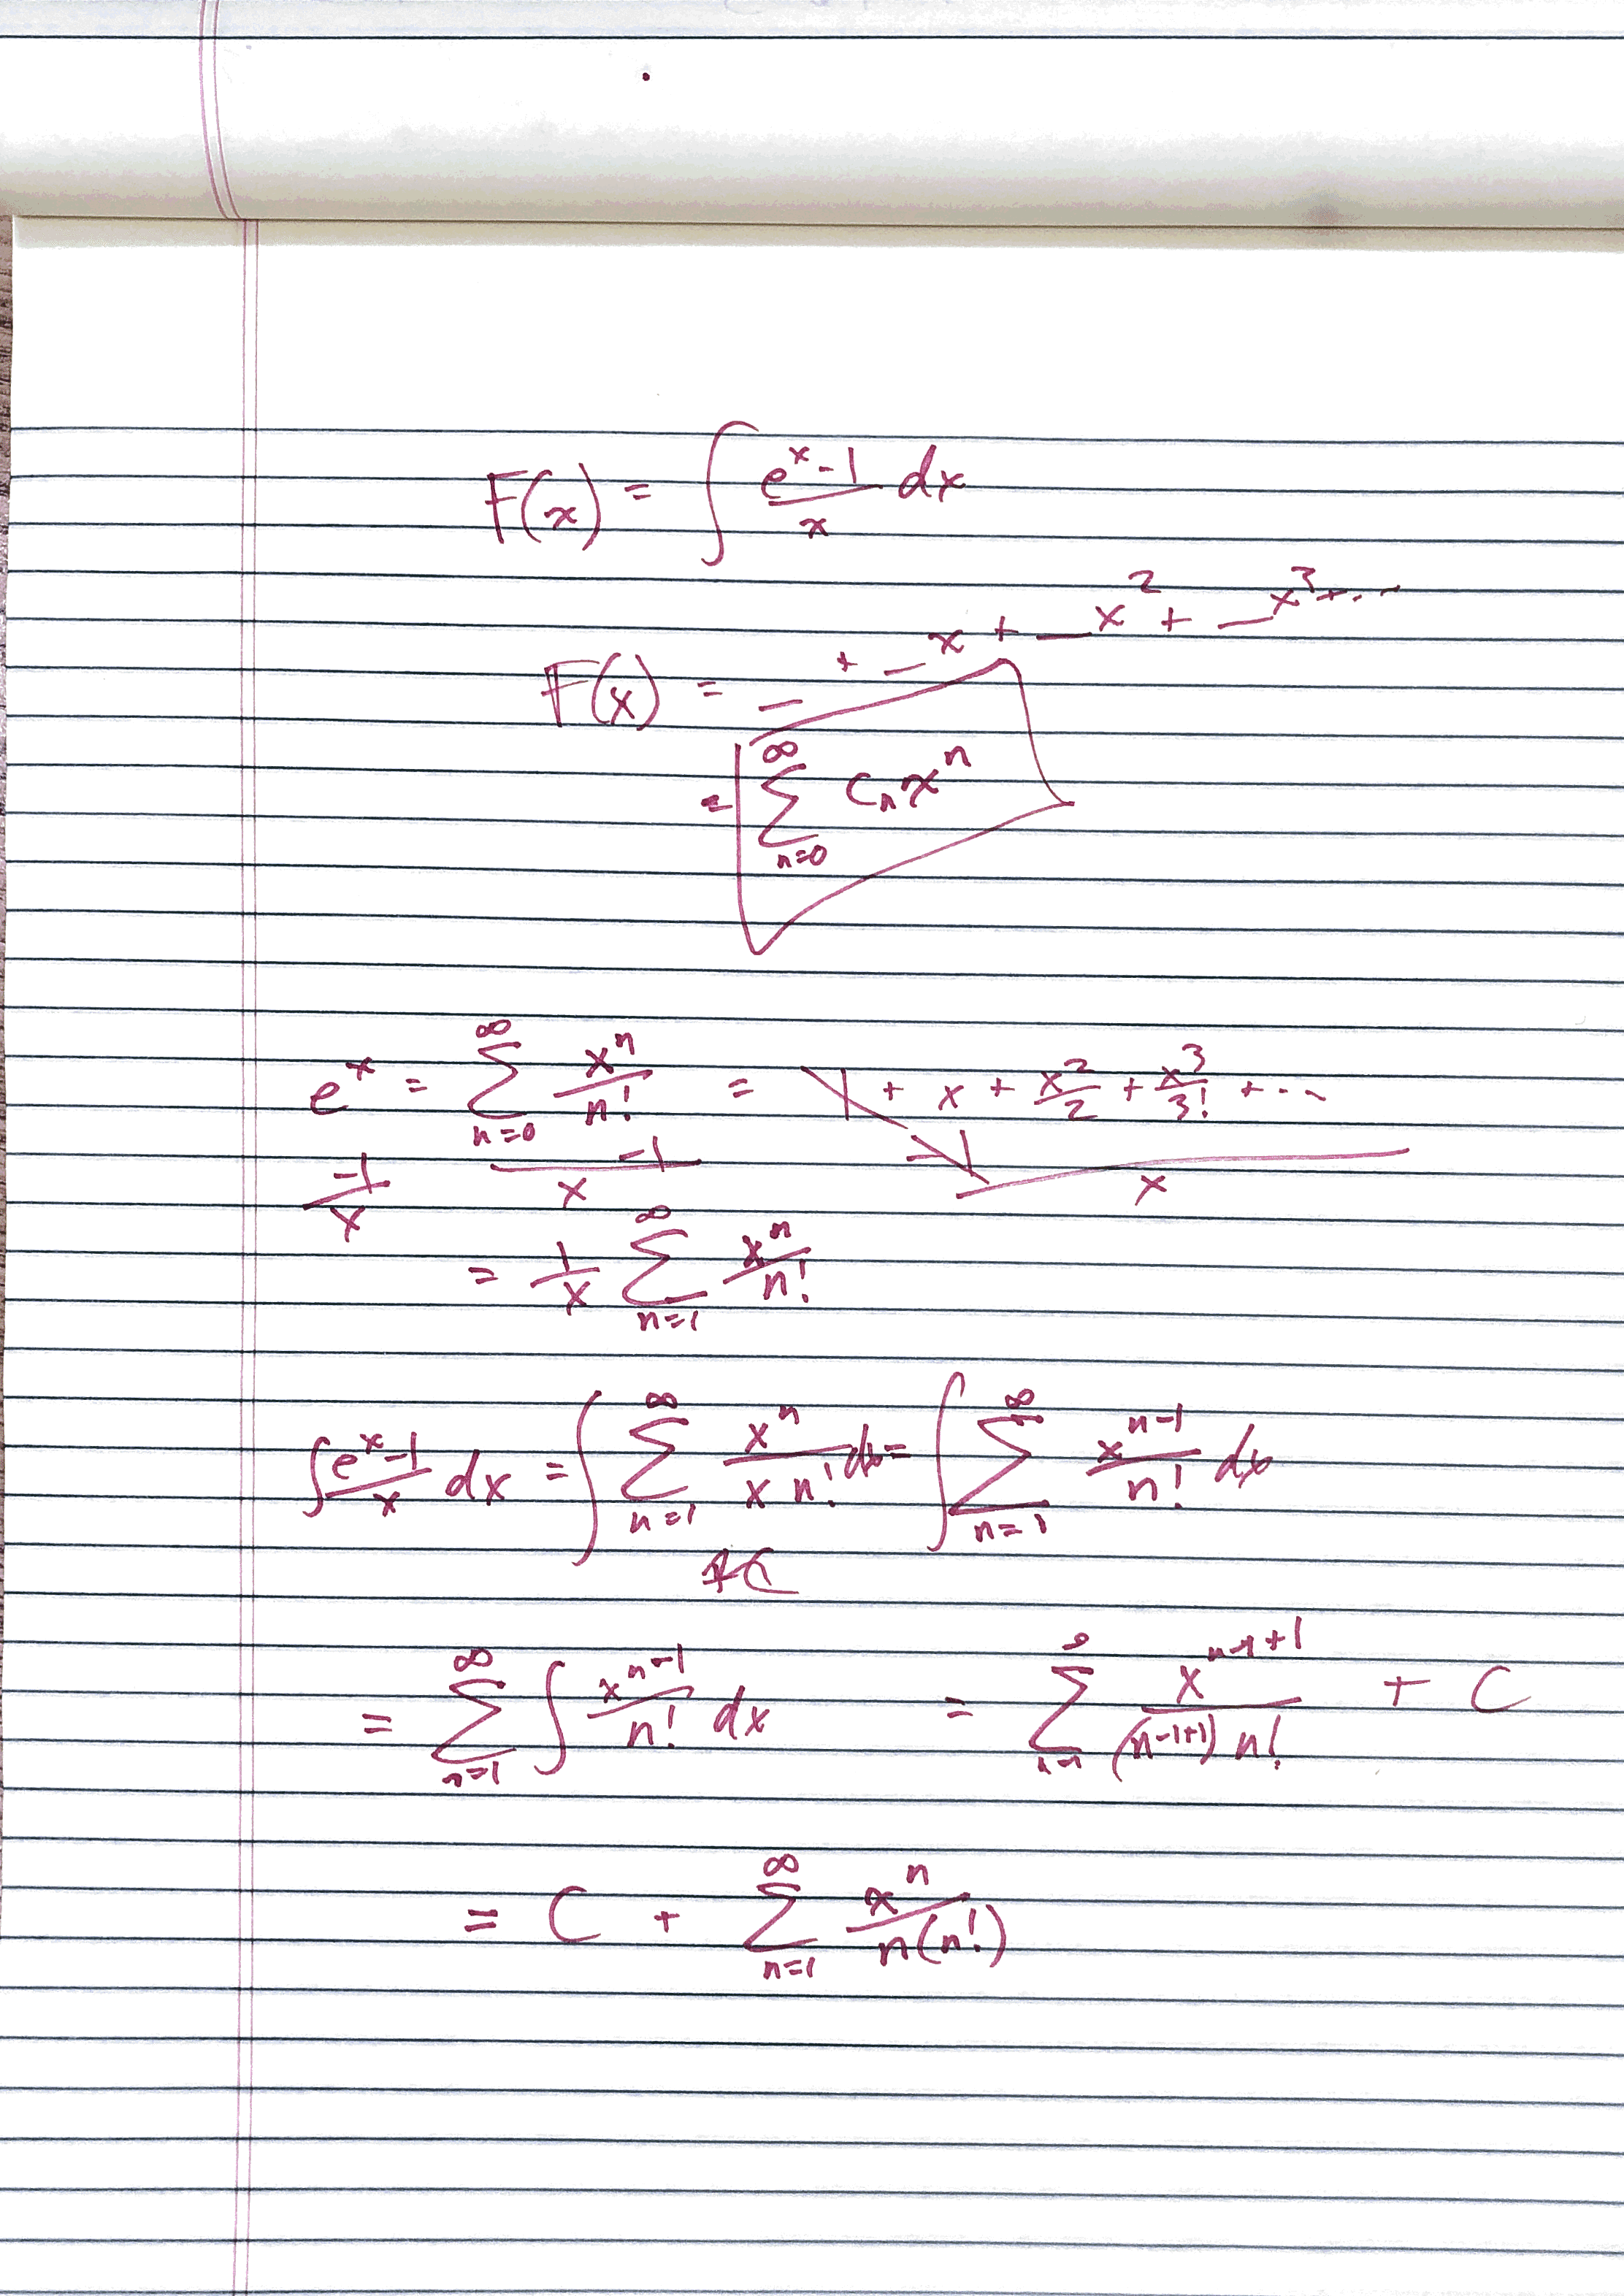 F(x) = ∫ (e^x - 1)/x dx
F(x) = _ + _ x + _ x^2 + _ x^3 + ...
= ∑_{n=0}^{∞} C_n x^n
e^x = ∑_{n=0}^{∞} x^n/n! = 1 + x + x^2/2 + x^3/3! + ...
-1 -1 -1
x x x
= 1/x ∑_{n=1}^{∞} x^n/n!
∫ (e^x - 1)/x dx = ∫ ∑_{n=1}^{∞} x^n/(x n!) dx = ∫ ∑_{n=1}^{∞} x^{n-1}/n! dx
= ∑_{n=1}^{∞} ∫ x^{n-1}/n! dx = ∑_{n=1}^{∞} x^{n-1+1}/((n-1+1) n!) + C
= C + ∑_{n=1}^{∞} x^n/(n(n!))